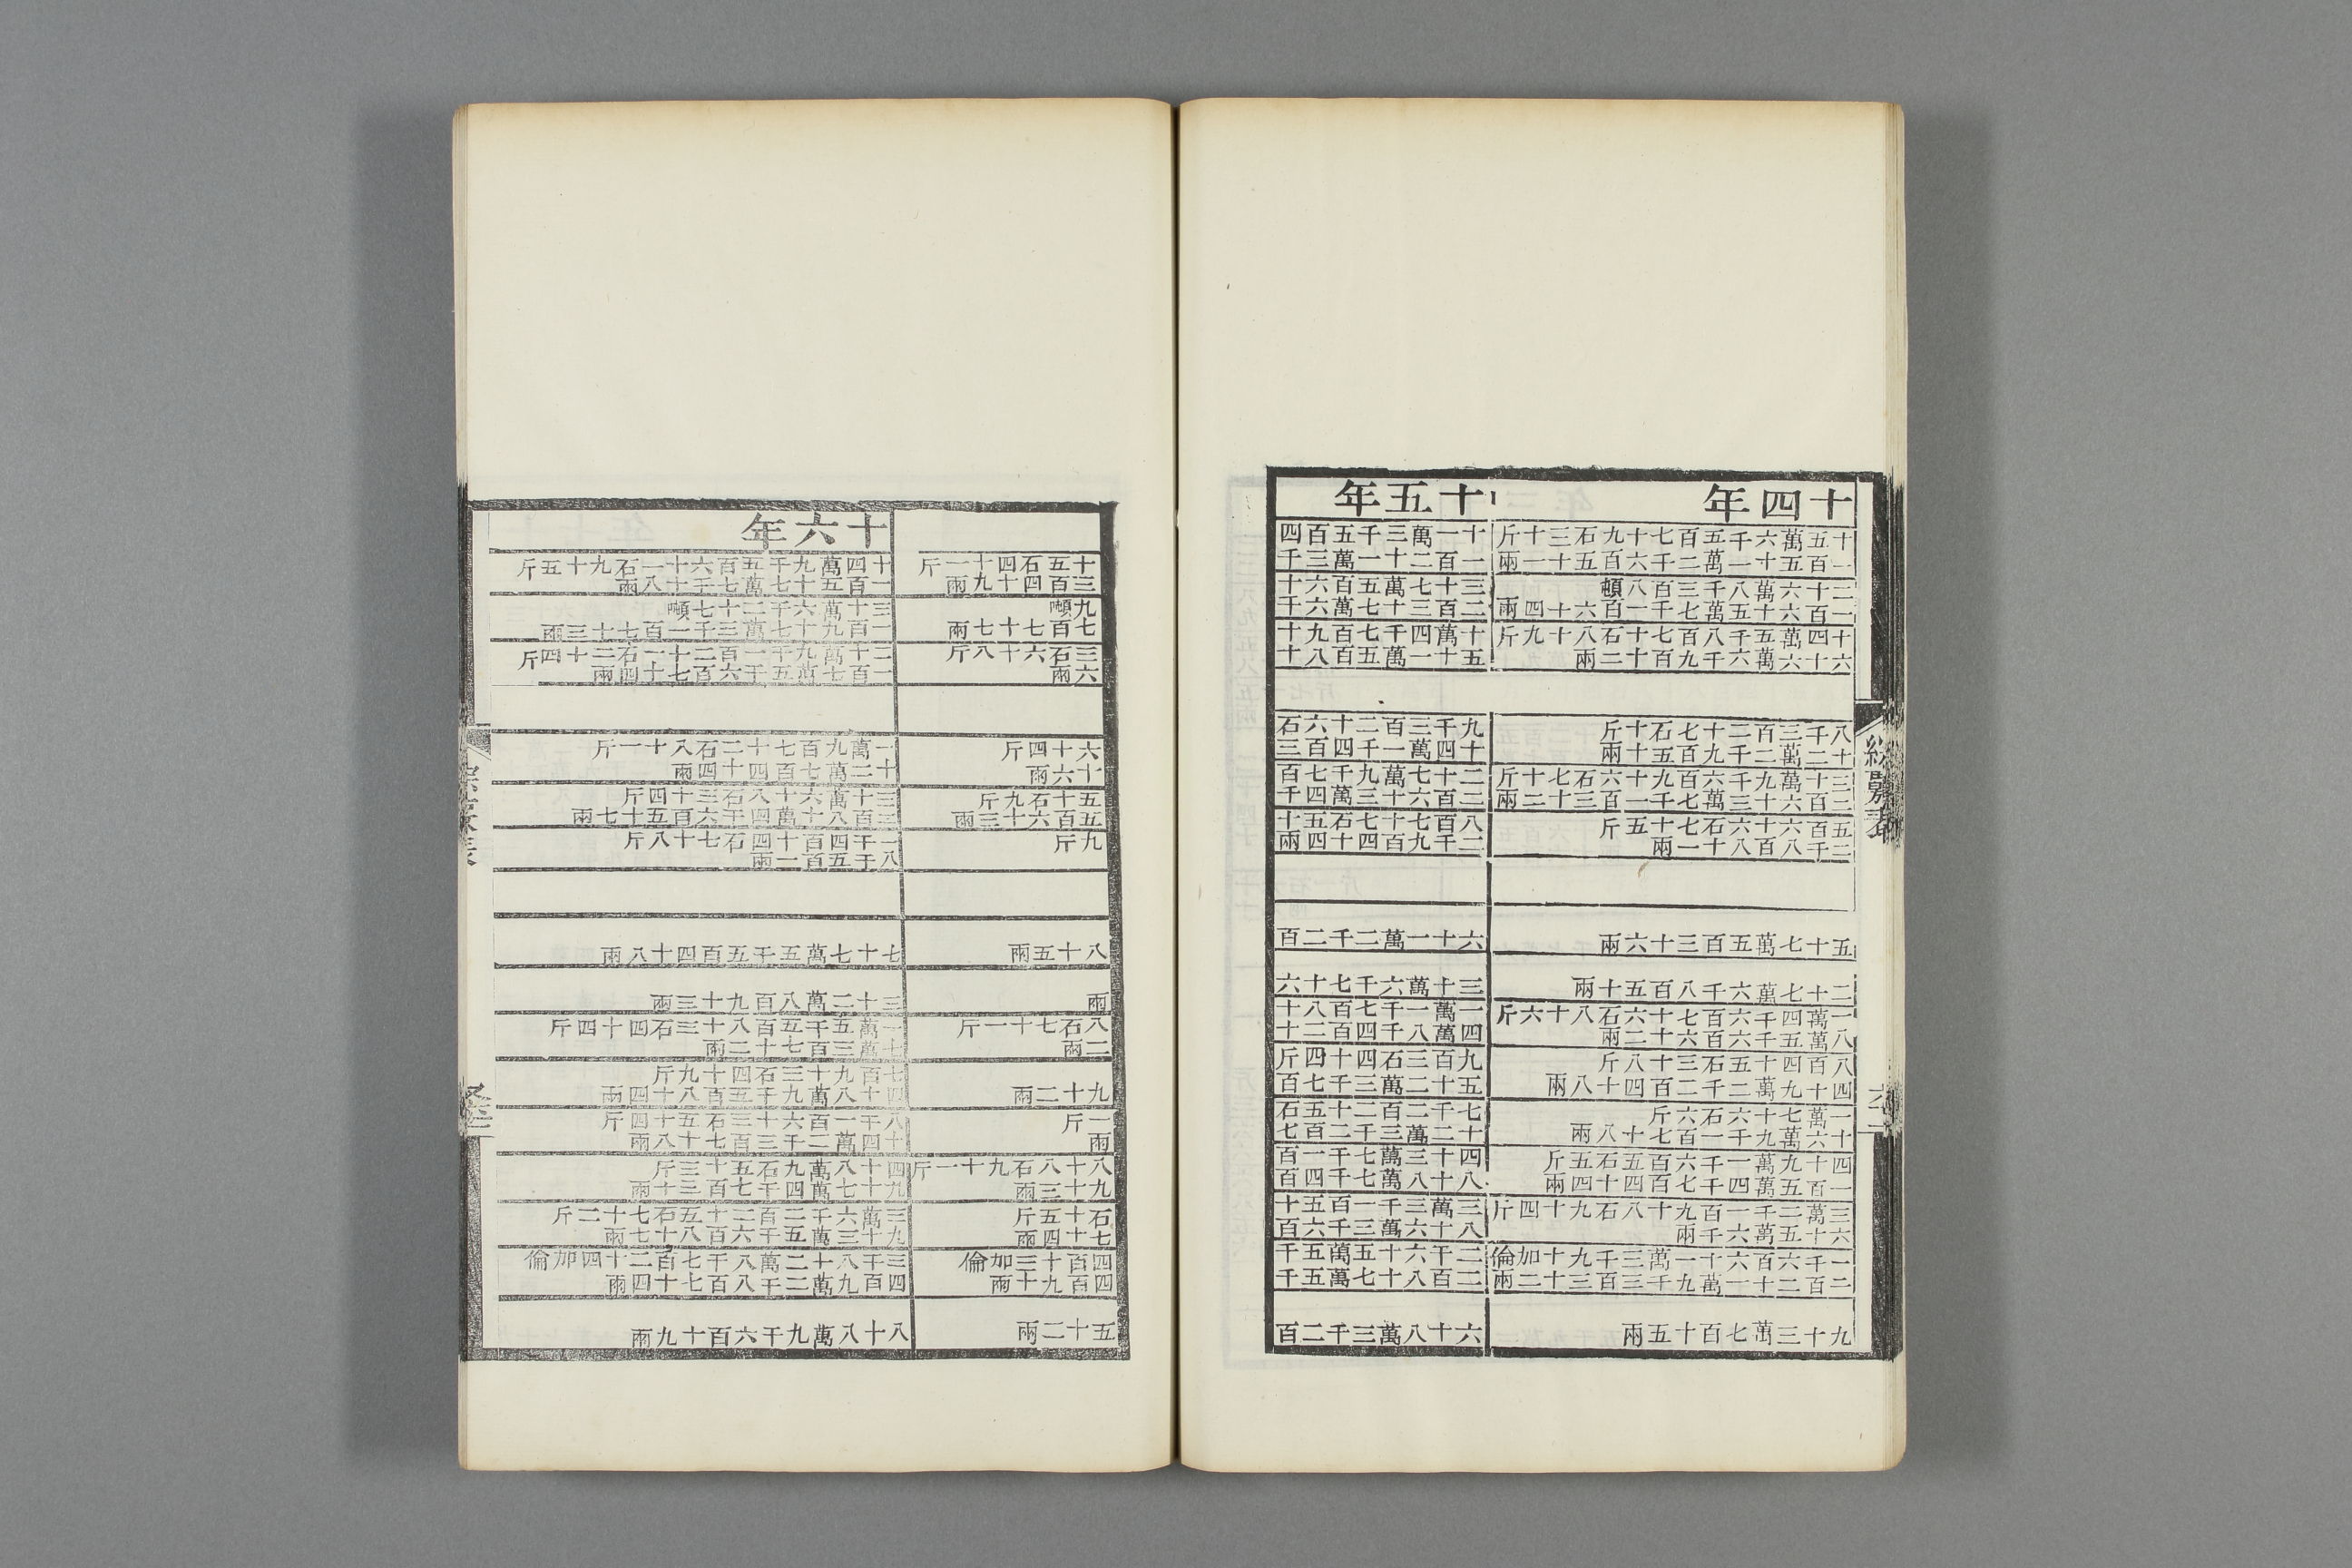 十四年
十五萬六千五百七十九石三十斤
一百五十一萬二千六百五十一兩
二十六萬八千三百八頓
一百六十五萬七千一百六十四兩
十四萬五千八百七十石八十九斤
六十六萬六千九百十二兩
八千三百二十七石十斤
十二萬二千九百五十兩
三十萬九千六百九十六石七十斤
二百六十三萬七千一百三十二兩
五百六十六石七十五斤
二千八百八十一兩
五十七萬五百三十六兩
二十七萬六千八百五十兩
一萬四千六百七十六石八十六斤
八萬五千六百六十二兩
八百四十五石三十八斤
四十九萬二千二百四十八兩
一萬七十六石六斤
十六萬九千一百七十八兩
四十九萬一千六百五石五斤
一百五萬四千七百四十四兩
三萬二千一百九十八石九十四斤
六十五萬六千兩
一千六百六十一萬三千九十加倫
二百二十一萬九千三百三十二兩
九十三萬七百十五兩
十五年
十一萬三千五百四
一百二十一萬三千
三十七萬五百六十
二百三十七萬六千
十萬四千七百九十
五十一萬五百八十
九千三百二十六石
十四萬一千四百三
二十七萬九千七百
二百六十三萬四千
八百七十七石五十
二千九百四十四兩
六十一萬二千二百
三十萬六千七十六
一萬一千七百八十
四萬八千四百二十
九百三石四十四斤
五十二萬三千七百
七千二百二十五石
十二萬三千二百七
四十三萬七千一百
八十八萬七千四百
三萬三千一百五十
八十六萬三千六百
二千六十五萬五千
二百八十七萬五千
六十八萬三千二百
十五石四十一斤
三百四十九兩
九噸
七百七十七兩
三石六十八斤
六兩
六十四斤
十六兩
五十石九斤
五百六十三兩
九斤
八十五兩
兩
八石七十一斤
二兩
九十二兩
一斤
兩
八十八石九十一斤
九十三兩
石十五斤
七十四兩
四百十三加倫
四百九十兩
五十二兩
十六年
十四萬九千五百六十一石九十五斤
一百五十七萬七千十八兩
三十萬六千二十七噸
一百九十七萬三千一百七十三兩
二十萬九千一百二十一石二十四斤
一百七萬五千六百七十四兩
一萬九百七十二石八十一斤
十二萬七百四十四兩
三十萬六十八石三十四斤
三百八十萬四千六百五十七兩
一千四百十四石七十八斤
八千五百一兩
七十七萬五千五百四十八兩
三十二萬八百九十三兩
一萬五千五百八十三石四十四斤
七萬三百七十二兩
七百九十三石四十九斤
四十八萬九千五百八十四兩
八千一百六十三石五十四斤
十四萬二千三百七十八兩
四十八萬九石五十三斤
九十七萬四千七百三十兩
三萬六千二百二十五石七十二斤
九十三萬五千六百八十七兩
三千八十二萬八千七百二十四加倫
四百九萬二千八百七十四兩
八十八萬九千六百十九兩